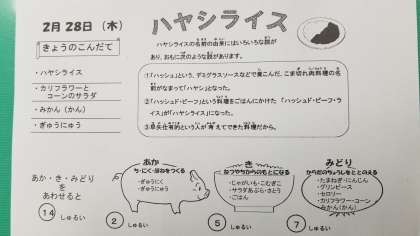 2月 28日（木）
ハヤシライス
きょうのこんだて
・ハヤシライス
・カリフラワーと
コーンのサラダ
・みかん（かん）
・ぎゅうにゅう
ハヤシライスの名前の由来にはいろいろな説が
あり、おもに次のような説があります。
①「ハッシュ」という、デミグラスソースなどで煮こんだ、こま切れ肉料理の名
前がなまって「ハヤシ」となった。
②「ハッシュド・ビーフ」という料理をごはんにかけた 「ハッシュド・ビーフ・ラ
イス」が「ハヤシライス」になった。
③早矢仕有的という人が 考えてできた料理だから。
あか・き・みどり
を
あわせると
14 しゅるい
あか
ち・にく・ほねをつくる
・ぎゅうにく
・ぎゅうにゅう
2 しゅるい
き
ねつやちからのもとになる
・じゃがいも・こむぎこ
・サラダあぶら・さとう
・ごはん
5 しゅるい
みどり
からだのちょうしをととのえる
・たまねぎ・にんじん
・グリンピース
・セロリー
・カリフラワー・コーン
・みかん（かん）
7 しゅるい